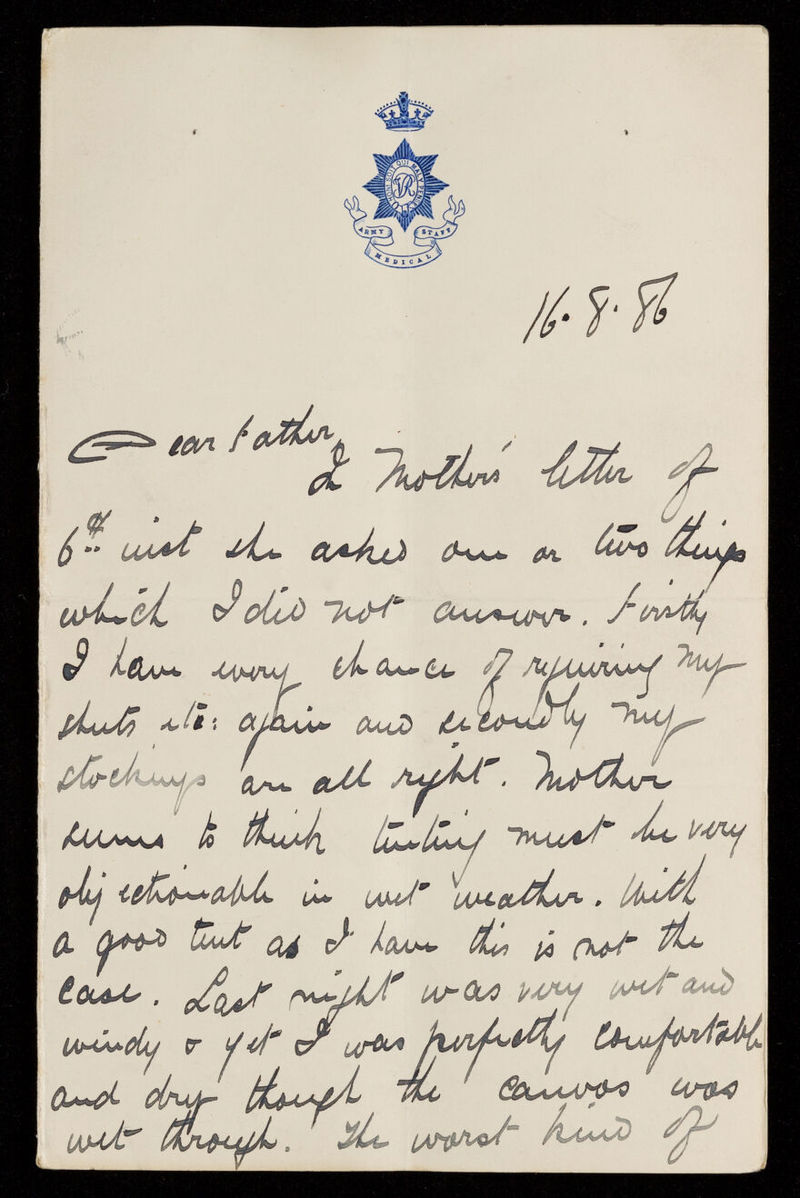 HONI SOIT QUI MAL Y PENSE
VR
ARMY STAFF
MEDICAL
16.8.86
Dear Father,
In Mother's letter of
6th inst she asked one or two things
which I did not answer. Firstly
I have every chance of requiring my
shirts etc: again and secondly my
stockings are all right. Mother
seems to think tenting must be very
objectionable in wet weather. With
a good tent as I have this is not the
case. Last night was very wet and
windy & yet I was perfectly comfortable
and dry though the canvas was
wet through. The worst kind of